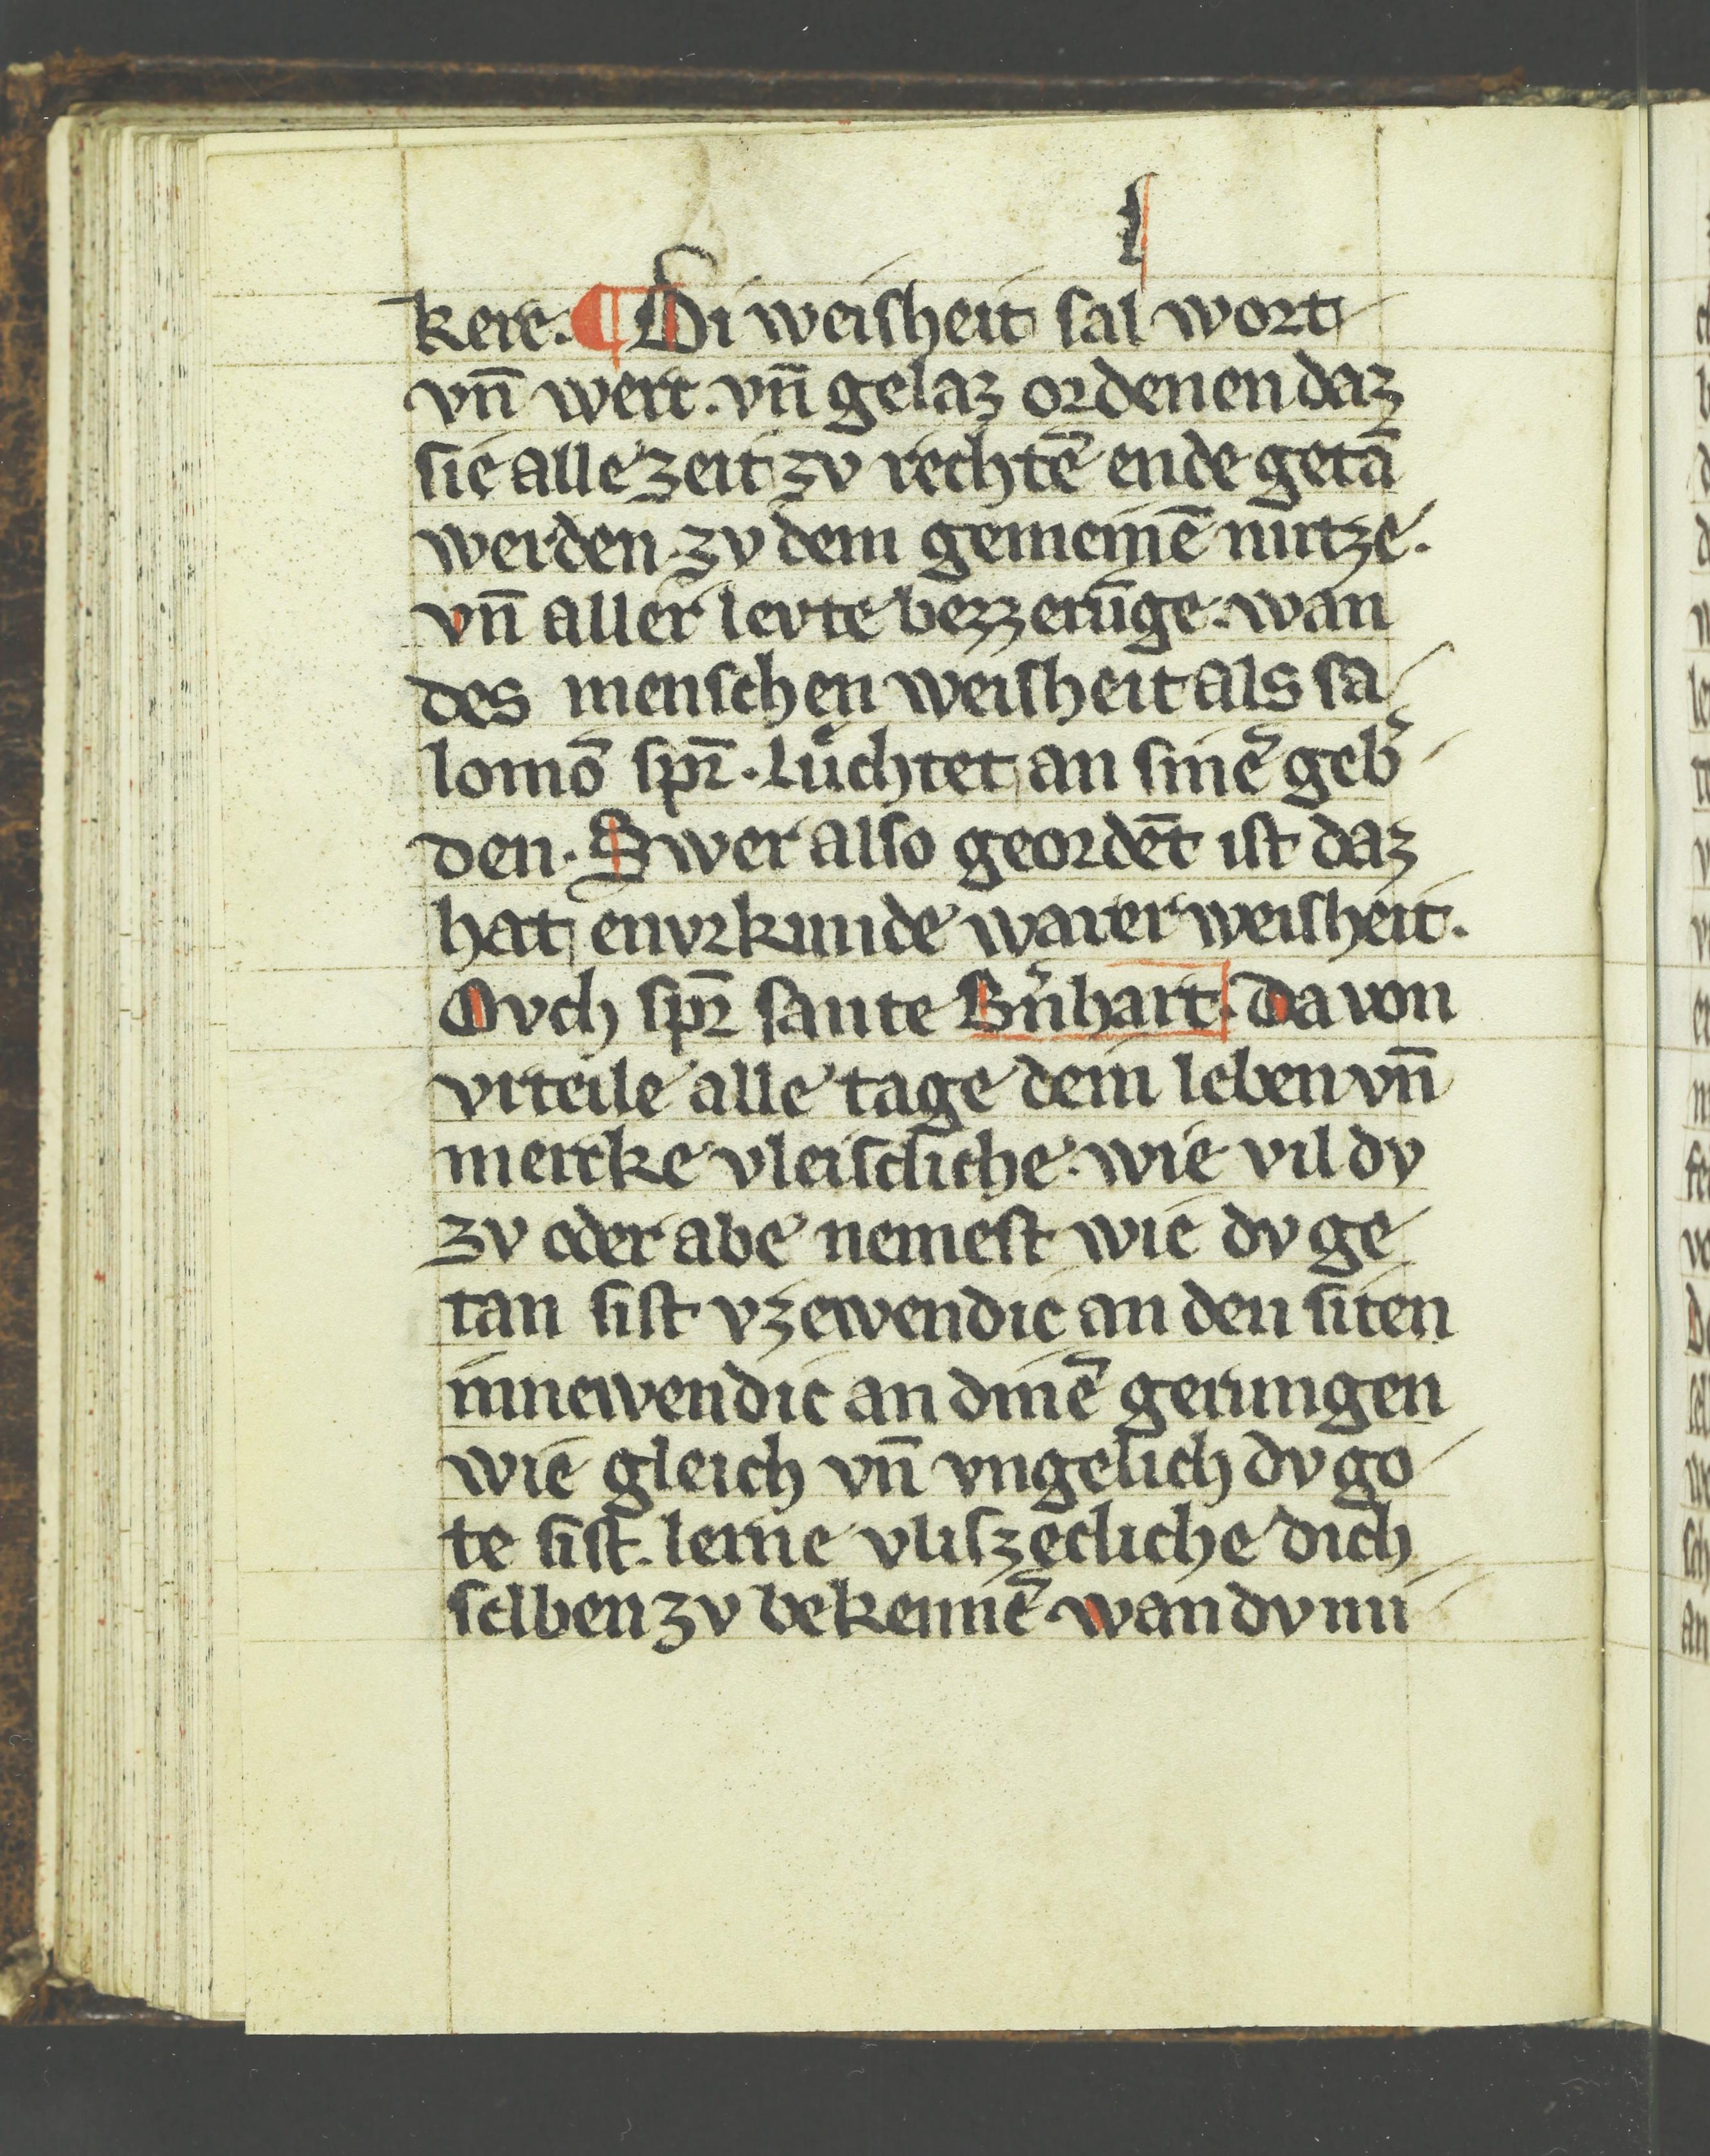 kere. ¶ Di weisheit sal wort
vn̄ werc. vn̄ gelaz ordenen daz
sie alle zeit zv rechtē ende getā
werden zv dem gemeinē nutze.
vn̄ aller levte bezzerūge. wan
des menschen weisheit als sa
lomō spr̄. lu̍chtet an sinē geb̾
den. Swer also geordēt ist daz
hat, en vrkunde warer weisheit.
Ovch spr̄ sante Bn̄hart. Da von
vrteile alle tage dein leben vn̄
mercke vleiscliche. wie vil dv
zv oder abe nemest wie dv ge
tan sist vzewendic an den siten
innewendic an dinē gerungen
wie gleich vn̄ vngelich dv go
te sist. lerne vliszecliche dich
selben zv bekennē wan dv mi